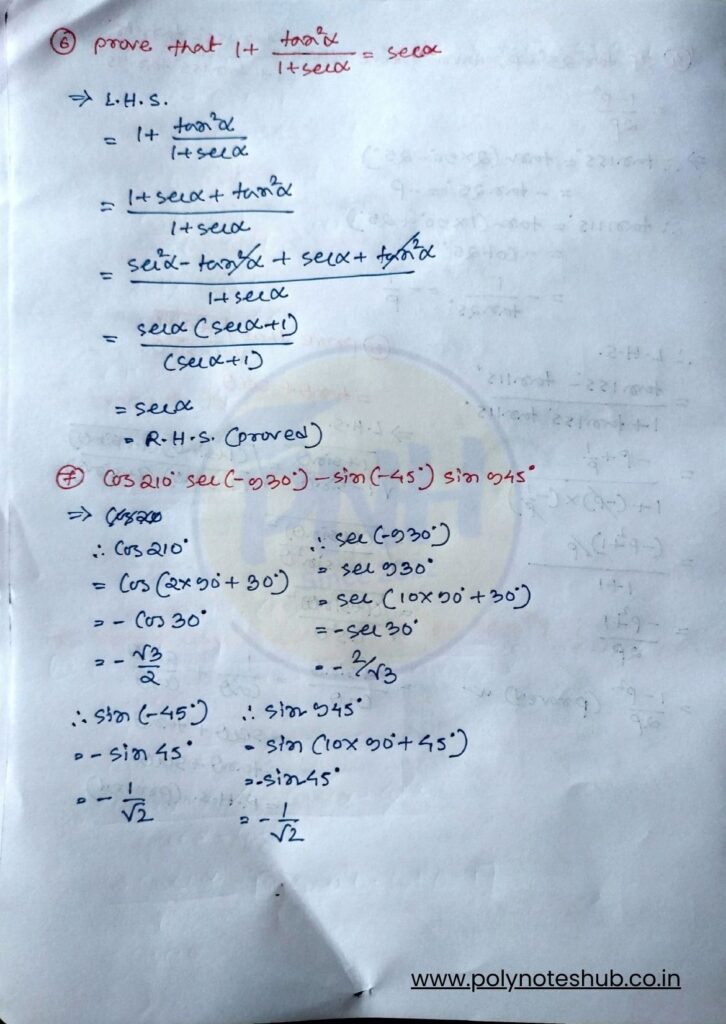 ⑥ prove that 1+ tan²α / 1+secα = secα
⇒ L.H.S.
= 1+ tan²α / 1+secα
= 1+secα+tan²α / 1+secα
= sec²α - tan²α + secα + tan²α / 1+secα
= secα (secα+1) / (secα+1)
= secα
= R.H.S. (proved)
⑦ cos210° sec(-930°) - sin(-45°) sin 945°
⇒ cos210
∴ cos210°
= cos(2×90°+30°)
= - cos 30°
= - √3/2
∴ sec(-930°)
= sec 930°
= sec (10×90°+30°)
= -sec 30°
= - 2/√3
∴ sin(-45°)
= - sin 45°
= - 1/√2
∴ sin 945°
= sin (10×90°+45°)
= -sin 45°
= - 1/√2
PNH
www.polynoteshub.co.in